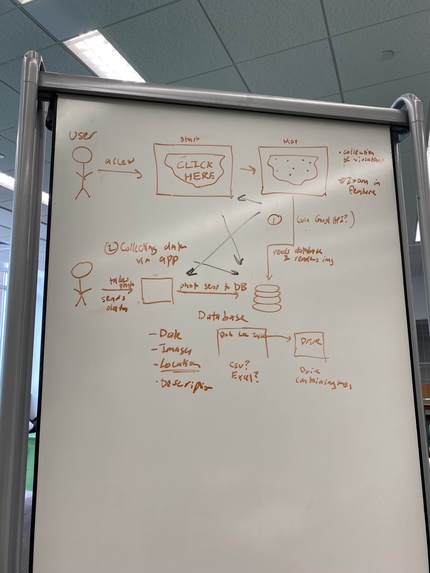 User
Start
Map
CLICK
HERE
• collection
of violations
Zoom in
feature
①
(via Google API?)
② Collecting data
via app
reads database
& renders img
takes
photo
sends
data
photo sent to DB
Database
- Date
- Images
- Location
- Description
CSV?
Excel?
Drive
Drive
containing images